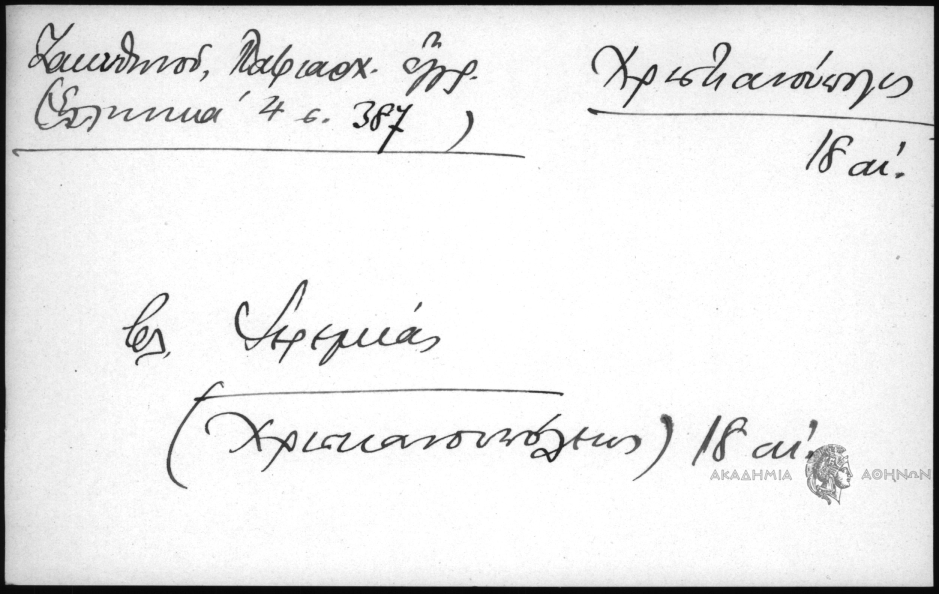 Ζακυθηνού, Πατριαρχ. έγγρ.
(Ἑλληνικά 4 σ. 387)
Χριστιανούπολις
18 αἰ.
βλ. Ἱερεμίας
(Χριστιανουπόλεως) 18 αἰ.
ΑΚΑΔΗΜΙΑ ΑΘΗΝΩΝ